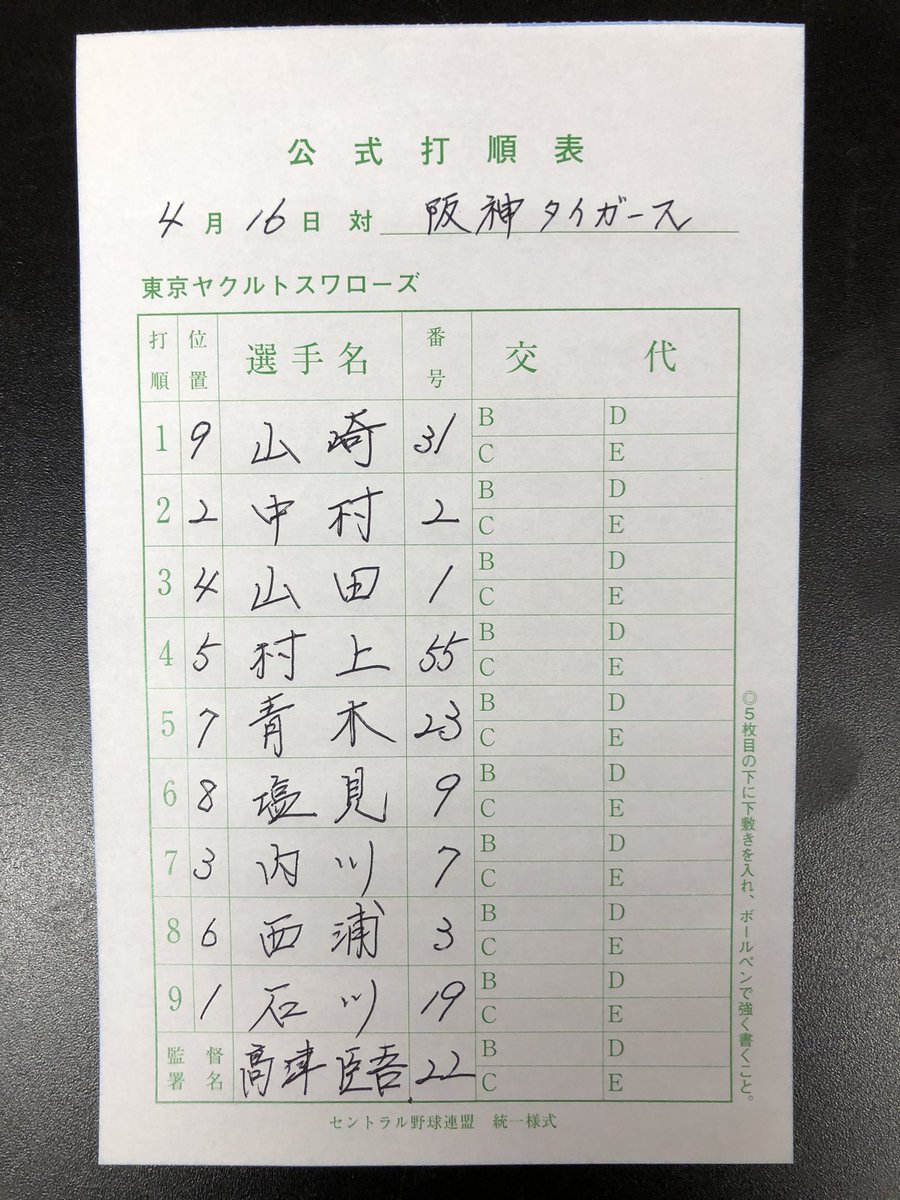 公式打順表
4月16日 対 阪神タイガース
東京ヤクルトスワローズ
打順 位置 選手名 番号 交代
1 9 山崎 31 B D C E
2 2 中村 2 B D C E
3 4 山田 1 B D C E
4 5 村上 55 B D C E
5 7 青木 23 B D C E
6 8 塩見 9 B D C E
7 3 内川 7 B D C E
8 6 西浦 3 B D C E
9 1 石川 19 B D C E
監督署名 高津臣吾 22 B D C E
セントラル野球連盟 統一様式
◎5枚目の下に下敷きを入れ、ボールペンで強く書くこと。